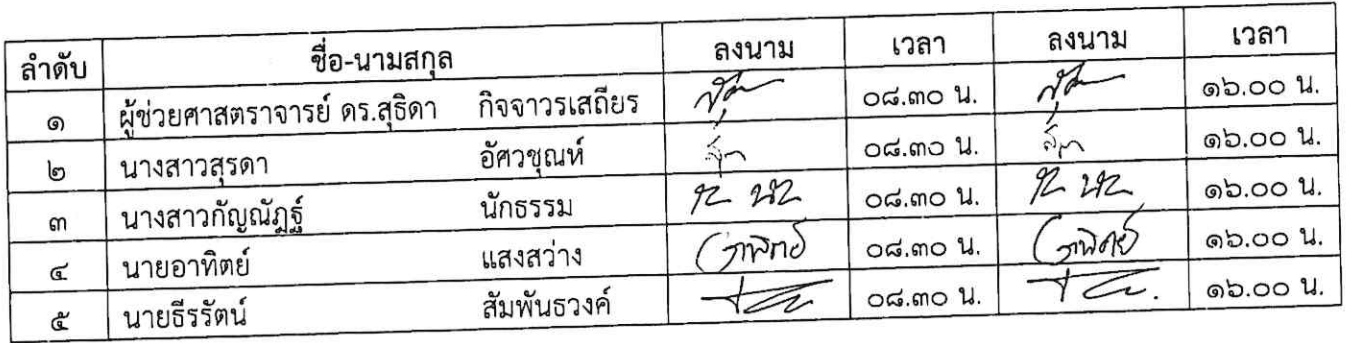 ลำดับ ชื่อ-นามสกุล ลงนาม เวลา ลงนาม เวลา
๑ ผู้ช่วยศาสตราจารย์ ดร.สุธิดา กิจจาวรเสถียร ๐๘.๓๐ น. ๑๖.๐๐ น.
๒ นางสาวสุรดา อัศวชุณห์ ๐๘.๓๐ น. ๑๖.๐๐ น.
๓ นางสาวกัญณัฏฐ์ นักธรรม ๐๘.๓๐ น. ๑๖.๐๐ น.
๔ นายอาทิตย์ แสงสว่าง อาทิตย์ ๐๘.๓๐ น. อาทิตย์ ๑๖.๐๐ น.
๕ นายธีรรัตน์ สัมพันธวงค์ ๐๘.๓๐ น. ๑๖.๐๐ น.